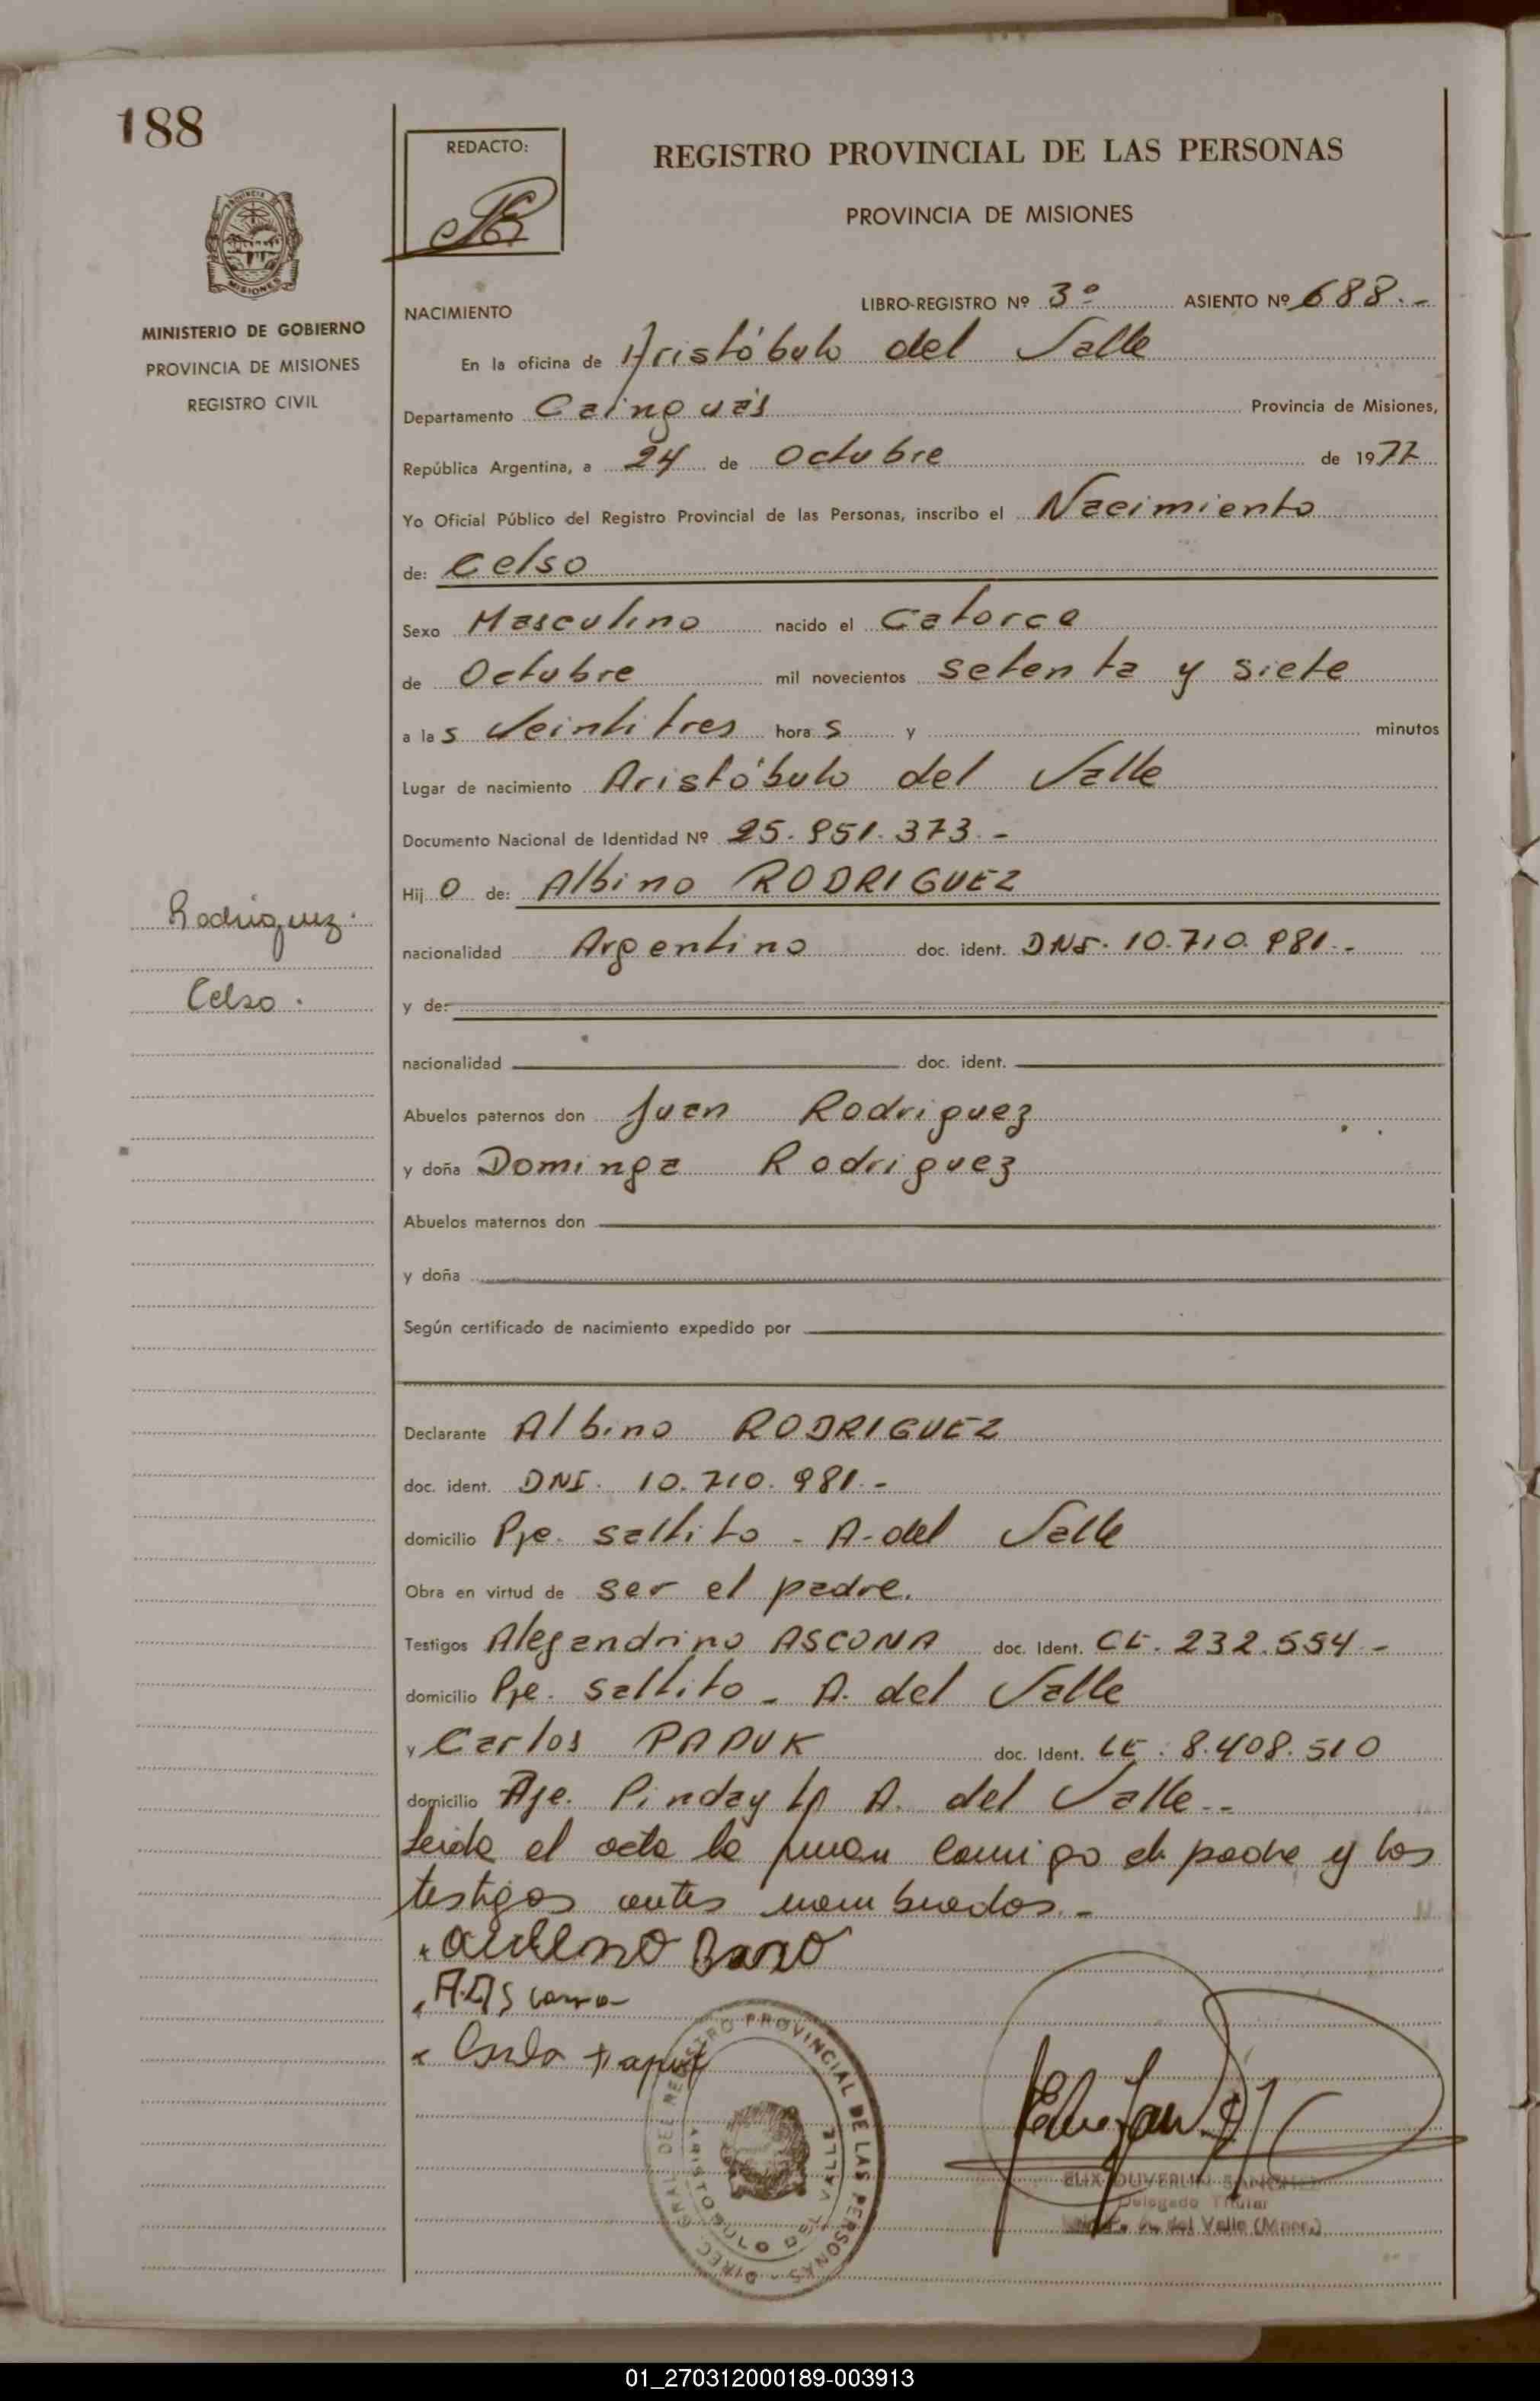 188
REDACTO:
REGISTRO PROVINCIAL DE LAS PERSONAS
PROVINCIA DE MISIONES
PROVINCIA DE
MISIONES
MINISTERIO DE GOBIERNO
PROVINCIA DE MISIONES
REGISTRO CIVIL
NACIMIENTO LIBRO-REGISTRO Nº 3º ASIENTO Nº 688.-
En la oficina de Aristóbulo del Valle
Departamento Cainguás Provincia de Misiones,
República Argentina, a 24 de Octubre de 1977
Yo Oficial Público del Registro Provincial de las Personas, inscribo el Nacimiento
de: Celso
Sexo Masculino nacido el Catorce
de Octubre mil novecientos setenta y siete
a las Veintitres horas y minutos
Lugar de nacimiento Aristóbulo del Valle
Documento Nacional de Identidad Nº 25.951.373.-
Hijo de: Albino RODRIGUEZ
Rodriguez.
nacionalidad Argentino doc. ident. DNI. 10.710.981.-
Celso.
y de:
nacionalidad doc. ident.
Abuelos paternos don Juan Rodriguez
y doña Dominga Rodriguez
Abuelos maternos don
y doña
Según certificado de nacimiento expedido por
Declarante Albino RODRIGUEZ
doc. ident. DNI. 10.710.981.-
domicilio Pje. saltito - A. del Valle
Obra en virtud de ser el padre.
Testigos Alejandrino ASCONA doc. Ident. CE. 232.554.-
domicilio Pje. saltito - A. del Valle
y Carlos PAPUK doc. Ident. LE. 8.408.510
domicilio Pje. Pinday A. del Valle.-
Leida el acta la firman conmigo el padre y los
testigos antes nombrados.-
DIREC. GRAL DEL REGISTRO PROVINCIAL DE LAS PERSONAS
ARISTOBULO DEL VALLE
SANCHEZ
Delegado Titular
A. del Valle (Mnes.)
01_270312000189-003913